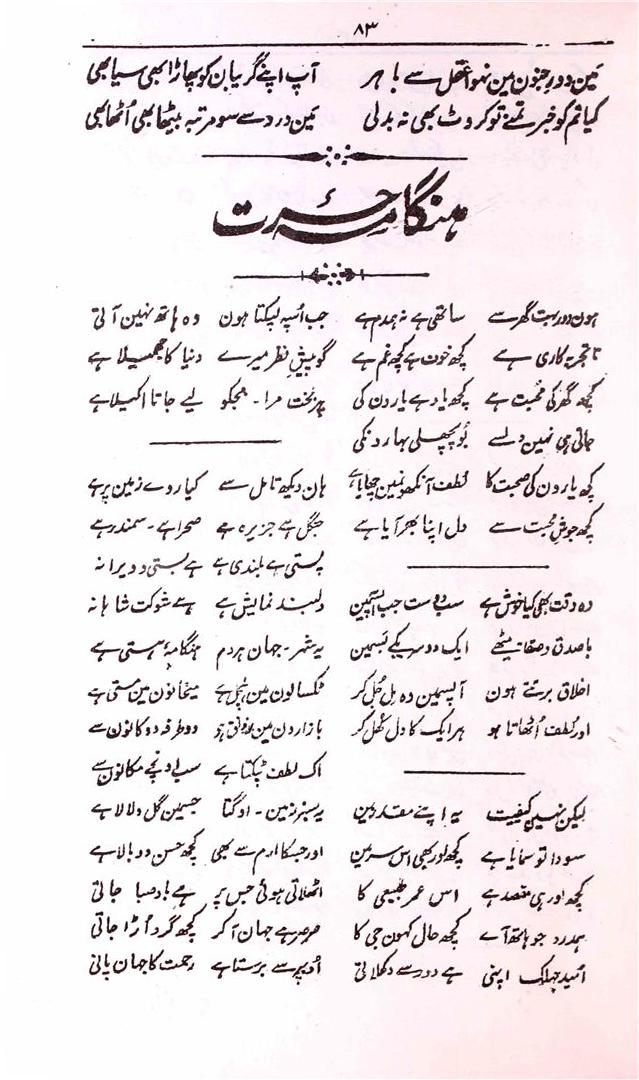 ۸۳
مین دورِ جنون مین نہوا عقل سے باہر آپ اپنے گریبان کو پھاڑا بھی سیا بھی
کیا تم کو خبر تمنے تو کروٹ بھی نہ بدلی مین درد سے سو مرتبہ بیٹھا بھی اُٹھا بھی
ہنگامۂ حسرت
ہون دور بہت گھر سے ساتھی ہے نہ ہمدم ہے
نا تجربہ کاری ہے کچھ خون ہے کچھ غم ہے
کچھ گھر کی محبت ہے کچھ یاد ہے یارون کی
جاتی ہی نہین دلسے بو پچھلی بہارونکی
کچھ یارون کی صحبت کا لطف آنکھونمین چھایا ہے
کچھ جوشِ محبت سے دل اپنا بھر آیا ہے
وہ وقت بھی کیا خوش ہے سب دوست جب آپسمین
با صدق و صفا بیٹھے ایک دوسریکے بسمین
اخلاق برتتے ہون آپسمین وہ ہل مل کر
اور لطف اُٹھاتا ہو ہر ایک کا دل کھل کر
لیکن نہین کیفیت یہ اپنے مقدر مین
سودا تو سمایا ہے کچھ اور بھی اس سرمین
کچھ اور ہی مقصد ہے اس عمرِ طبیعی کا
ہمدرد جو ہاتھ آے کچھ حال کہون جی کا
اُمید جھلک اپنی ہے دور سے دکھلاتی
جب اُسپہ لپکتا ہون وہ ہاتھ نہین آتی
گو پیشِ نظر میرے دنیا کا جھمیلا ہے
پر بخت مرا۔ مجکو لیے جاتا اکیلا ہے
ہان دیکھ تامل سے کیا روے زمین پر ہے
جنگل ہے جزیرہ ہے صحرا ہے۔ سمندر ہے
پستی ہے بلندی ہے ہے بستی و ویرانہ
دلبند نمایش ہے ہے شوکت شاہانہ
یہ شہر۔ جہان ہردم ہنگامۂ ہستی ہے
ٹکسالون مین ہلچل ہے میخانون مین مستی ہے
بازارون مین رونق ہو دو طرفہ دوکانون سے
اک لطف ٹپکتا ہے سب اونچے مکانون سے
یہ سبز زمین۔ اوگتا جسمین گل و لالا ہے
اور جسکا ارم سے بھی کچھ حسن دوبالا ہے
اٹھلاتی ہوئی جس پر ہے بادِ صبا جاتی
صرصر ہے جہان آکر کچھ گرد اُڑا جاتی
اوپر سے برستا ہے رحمت کا جہان پانی